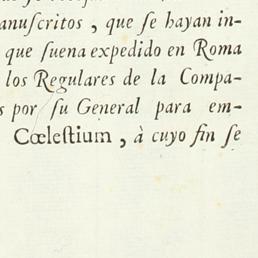 anuſcritos, que ſe hayan in-
que ſuena expedido en Roma
los Regulares de la Compa-
s por ſu General para em-
Cœleſtium, à cuyo fin ſe